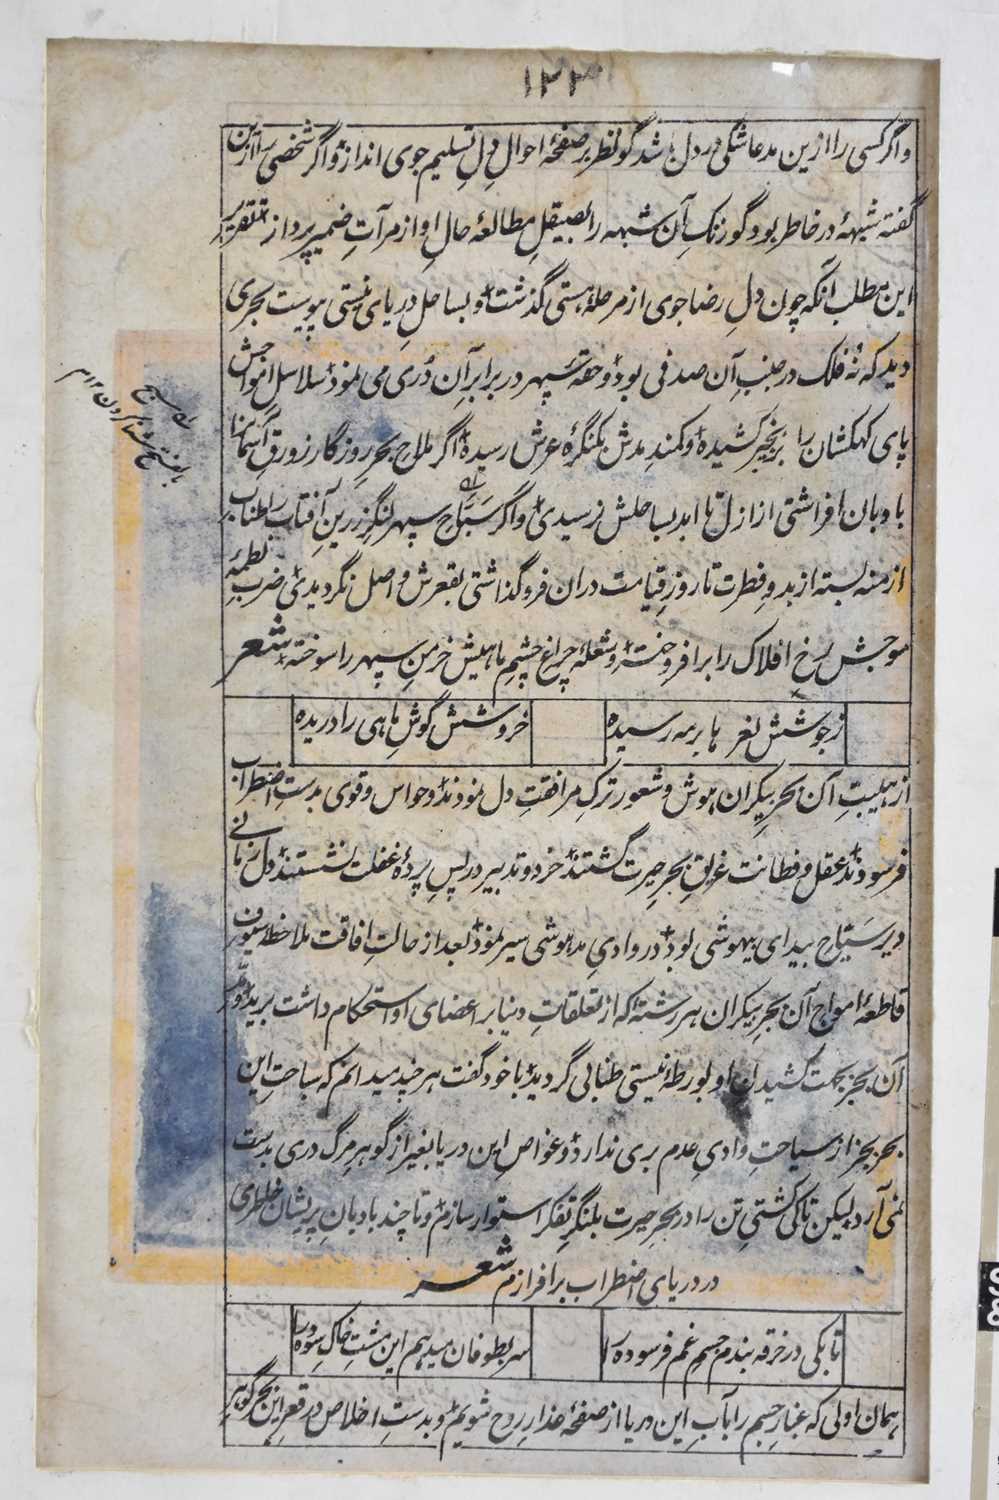 ۱۲۲
و اگر کسی را ازین مدعا شکی در دل باشد گو نظر بر صفحهٔ احوال دلِ تسلیم جوی انداز و اگر شخصی را ازین
گفته شبههٔ در خاطر بود گو زنگِ آن شبهه را بصیقلِ مطالعهٔ حالِ او از مرآتِ ضمیر پرداز تقریر
این مطلب آنکه چون دلِ رضا جوی از مرحلهٔ هستی گذشت و بساحلِ دریای نیستی پیوست بحری
دید که نُه فلک در جنبِ آن صدفی بود و حقهٔ سپهر در برابرِ آن دُری می نمود سلاسل امواجش
پای کهکشان را بزنجیر کشیده و کمندِ مدش بکنگرهٔ عرش رسیده اگر ملاح بحرِ روزگار زورقِ آسمان را
بادبان افراشتی از ازل تا ابد بساحلش نرسیدی و اگر سَبّاحِ سپهر لنگرِ زرینِ آفتاب را بطناب
ازمنه بسته از بدوِ فطرت تا روزِ قیامت دران فرو گذاشتی بقعرش واصل نگردیدی ضربِ لطمهٔ
موجش رخِ افلاک را برافروخته و شعلهٔ چراغِ چشمِ ماهیش خرمنِ سپهر را سوخته شعر
ز جوشش نغر ها بر مه رسیده
خروشش گوشِ ماهی را دریده
از هیبتِ آن بحرِ بیکران هوش و شعور ترکِ مرافقتِ دل نمودند و حواس و قوی بدستِ اضطراب
فرسودند عقل و فطانت غریقِ بحرِ حیرت گشتند خرد و تدبیر در پسِ پردهٔ غفلت نشستند دل زمانی
دیر سَیّاحِ بیدای بیهوشی بود و در وادیِ مدهوشی سیر نمود بعد از حالتِ افاقت ملاحظه
قاطعهٔ امواجِ آن بحرِ بیکران هر رشته که از تعلقاتِ دنیا بر اعضای او استحکام داشت برید و
آن بحر بجهت کشیدن او بورطهٔ نیستی طنابی گردید با خود گفت هر چند میدانم که سباحتِ این
بحر بجز از سیاحتِ وادیِ عدم بری ندارد و غواصِ این دریا بغیر از گوهرِ مرگ دری بدست
نمی آرد لیکن تا کی کشتیِ تن را در بحرِ حیرت بلنگرِ تفکر استوار سازم و تا چند بادبانِ پریشان خاطری
در دریای اضطراب برافرازم شعر
تا بکی در خرقه بندم جسمِ غم فرسوده را
سر بطوفان میدهم این مشتِ خاکِ سوده را
همان اولی که غبارِ جسم را بآبِ این دریا از صفحهٔ عذارِ روح شویم و بدستِ اخلاص در قعرِ این بحر گوهر